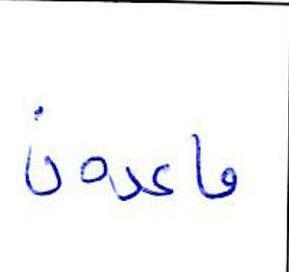 قاعدون